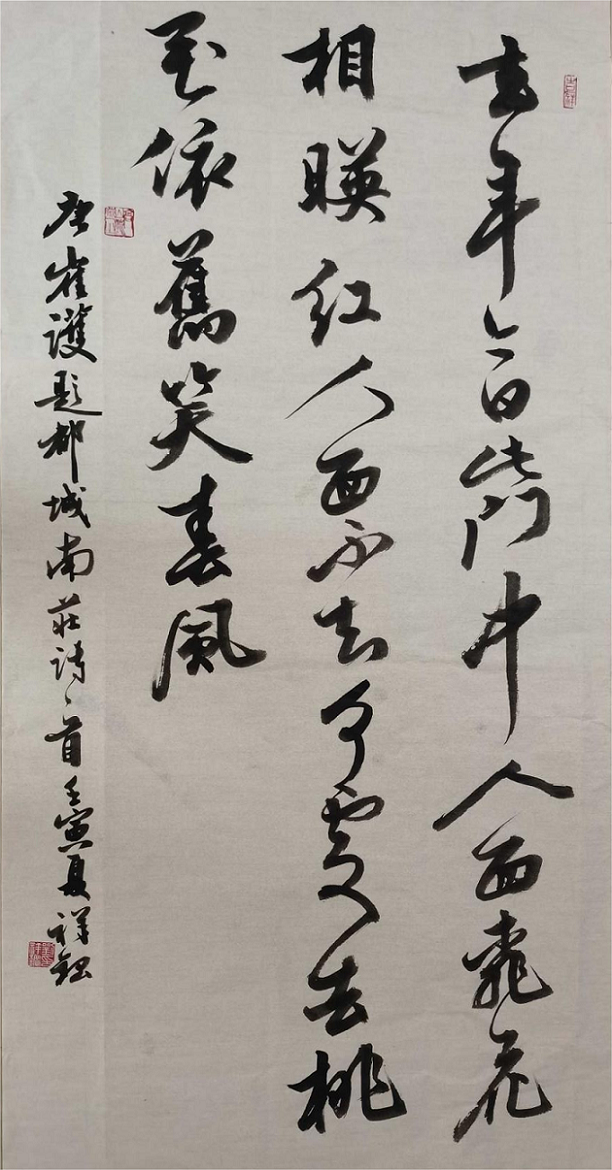 去年今日此門中人面桃花
相暎紅人面不知何處去桃
花依舊笑春風
唐崔護題都城南莊詩一首壬寅夏祥